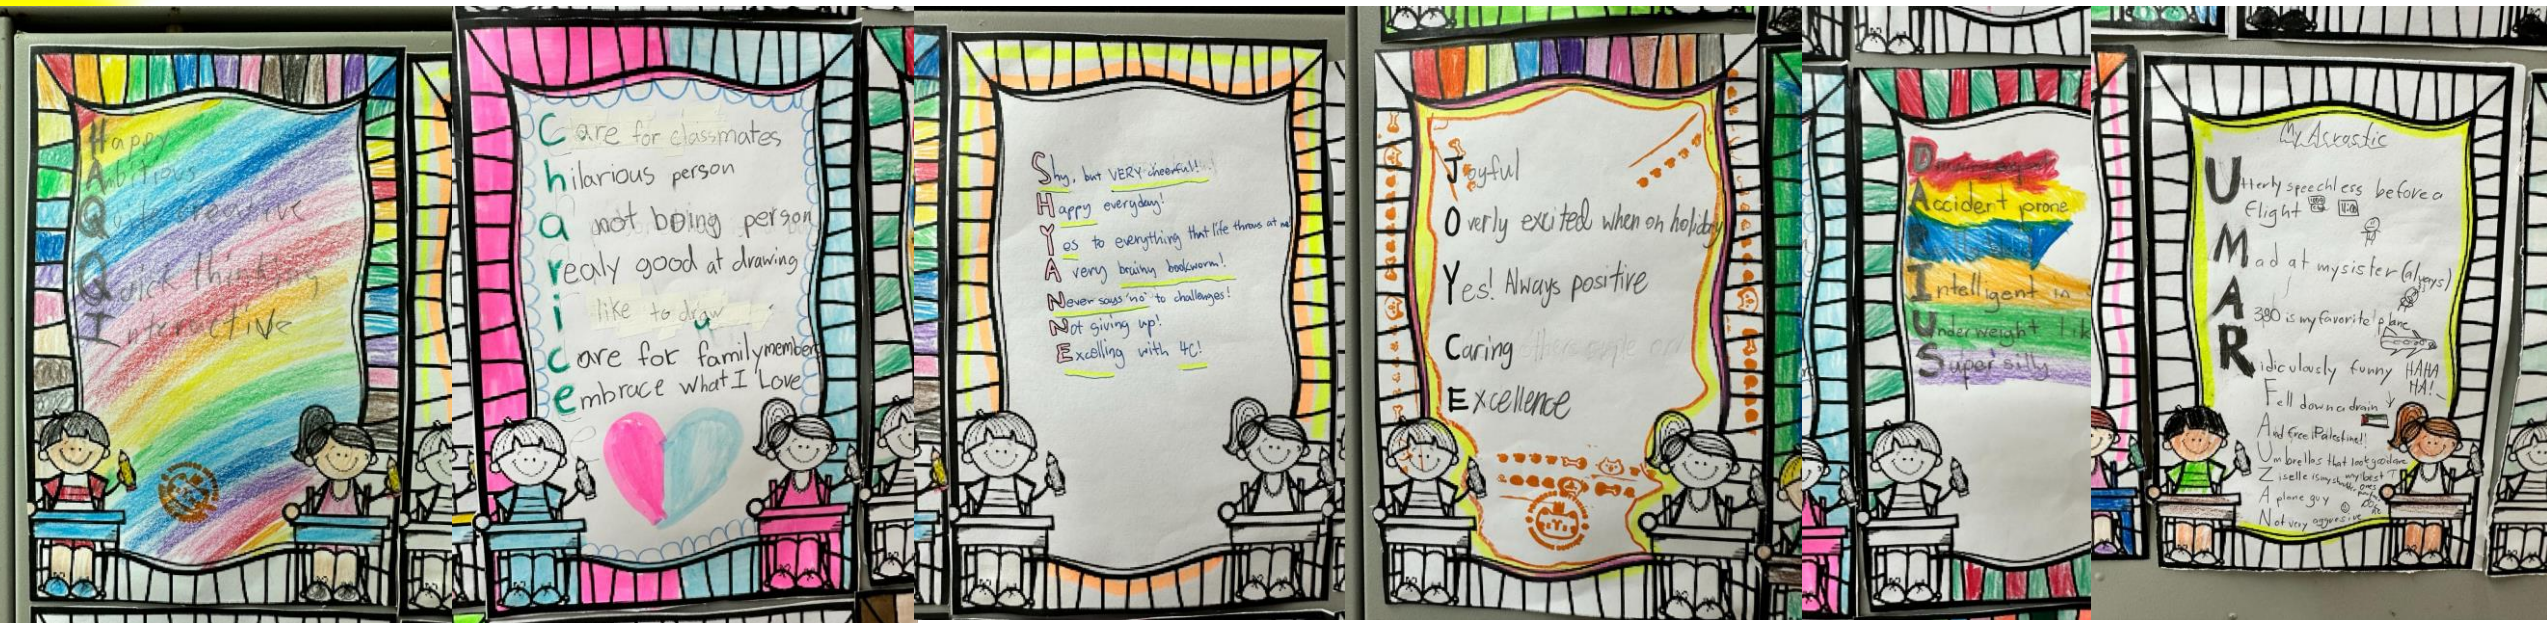 Happy
Ambitious
Quite creative
Quick thinking
Interactive
Care for classmates
hilarious person
a not being person
realy good at drawing
i like to draw
care for family members
embrace what I Love
Shy, but VERY cheerful!
Happy everyday!
Yes to everything that life throws at me!
A very brainy bookworm!
Never says "no" to challenges!
Not giving up!
Excelling with 4C!
Joyful
Overly excited when on holiday
Yes! Always positive
Caring
Excellence
D
Accident prone
R
Intelligent in
Underweight lik
Super silly
My Acrastic
Utterly speechless before a
flight
Mad at my sister (always)
A380 is my favorite plane
Ridiculously funny HAHA
HA!
Fell down a drain
And free Palestine!!
Umbrellas that look good are
my best
Ziselle is my
A plane guy
Not very aggresive